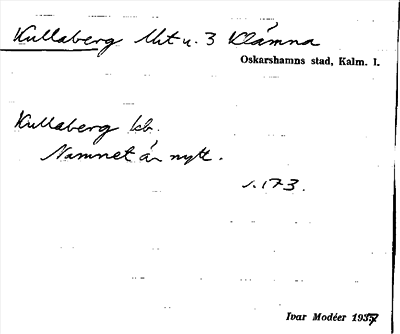 Kullaberg lht u. 3 Klämna
Oskarshamns stad, Kalm. l.
Kullaberg kb.
Namnet är nytt.
s. 173.
Ivar Modéer 1937